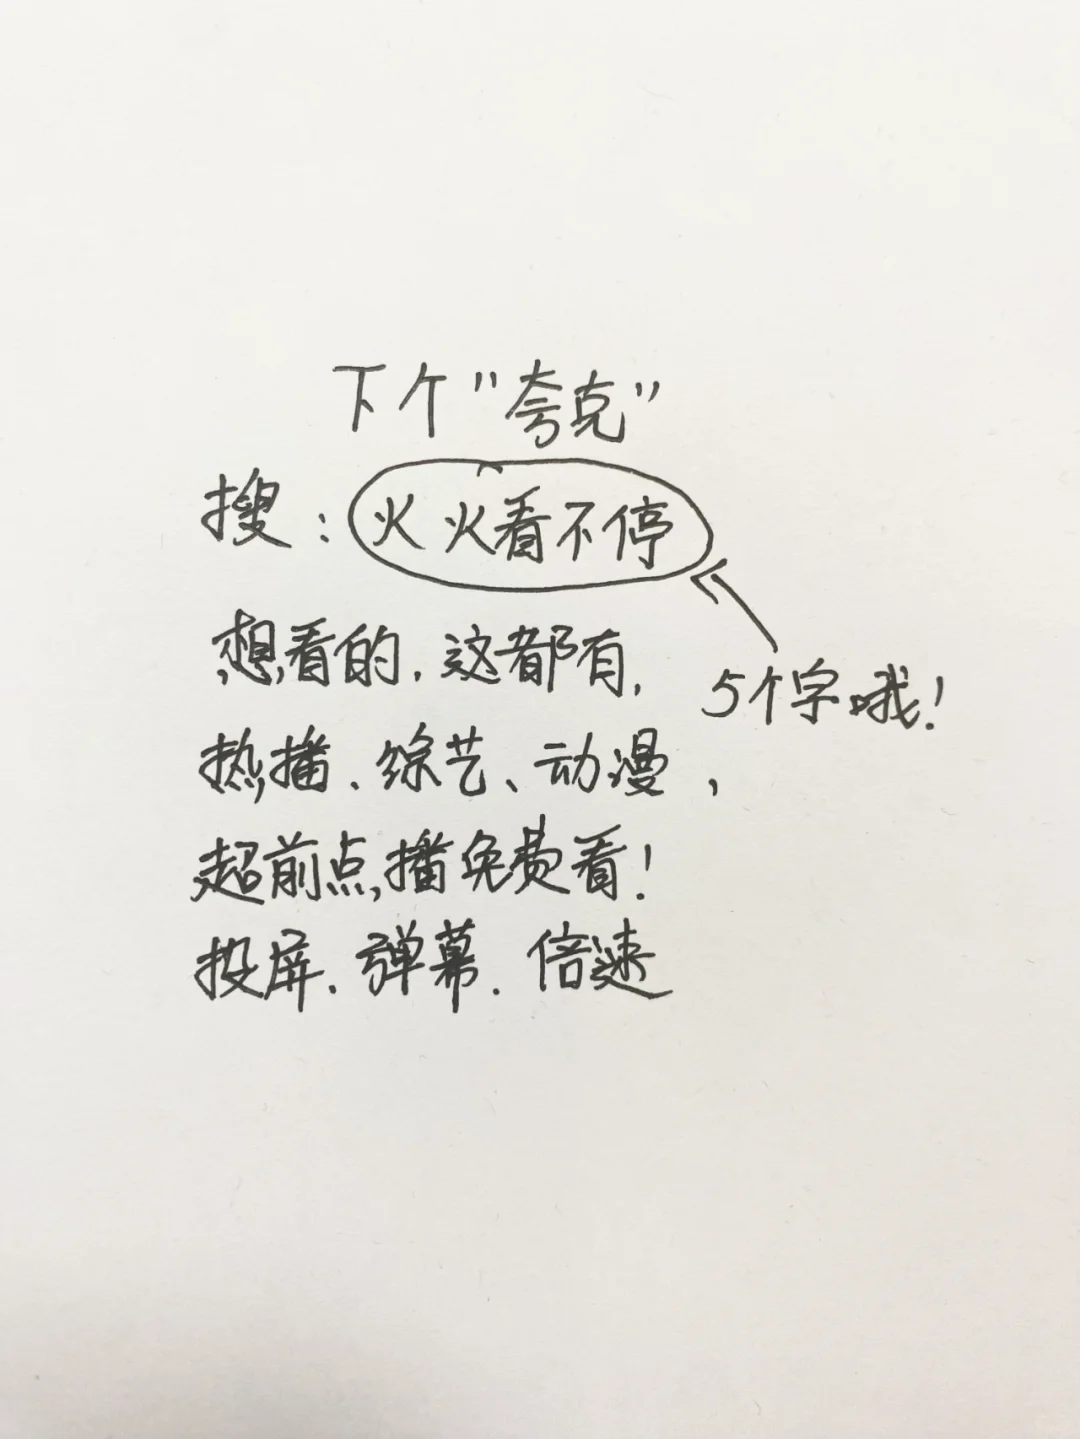 下个"夸克"
搜：火火看不停
想看的，这都有，
5个字哦！
热播、综艺、动漫，
超前点播免费看！
投屏、弹幕、倍速